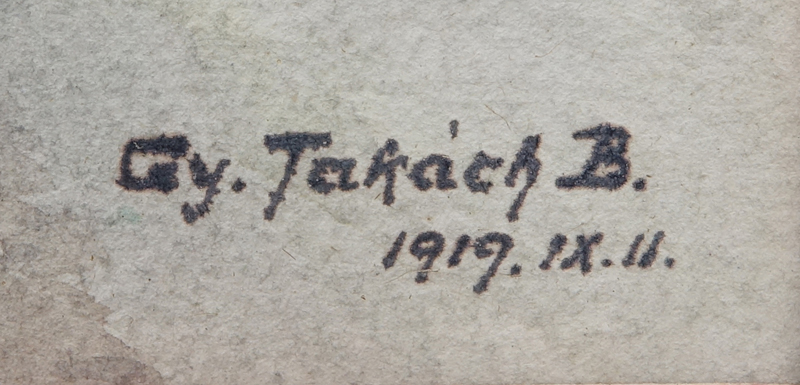 Gy. Takách B.
1919. IX. 11.